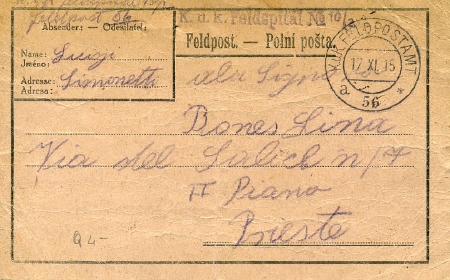 Feldpost 56
K. u. k. Feldspital No 10/
Absender: — Odesilatel:
Feldpost. — Polni pošta.
Name: Luigi
Jméno:
Adresse: Simonetti
Adresa:
K.u.K. FELDPOSTAMT
17 XI. 15
a 56 *
alla Signora
Bones Lina
Via del Salice n/7
II Piano
Trieste
Q 4-